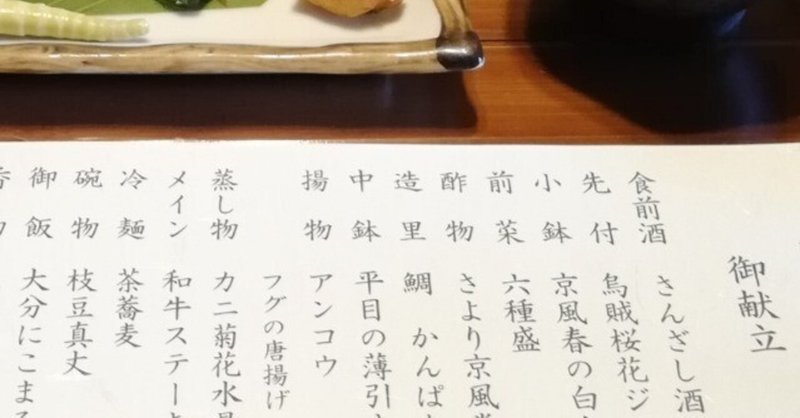 御献立
食前酒 さんざし酒
先付 烏賊桜花ジ
小鉢 京風春の白
前菜 六種盛
酢物 さより京風
造里 鯛 かんぱ
中鉢 平目の薄引
揚物 アンコウ
フグの唐揚げ
蒸し物 カニ菊花水
メイン 和牛ステー
冷麺 茶蕎麦
碗物 枝豆真丈
御飯 大分にこま